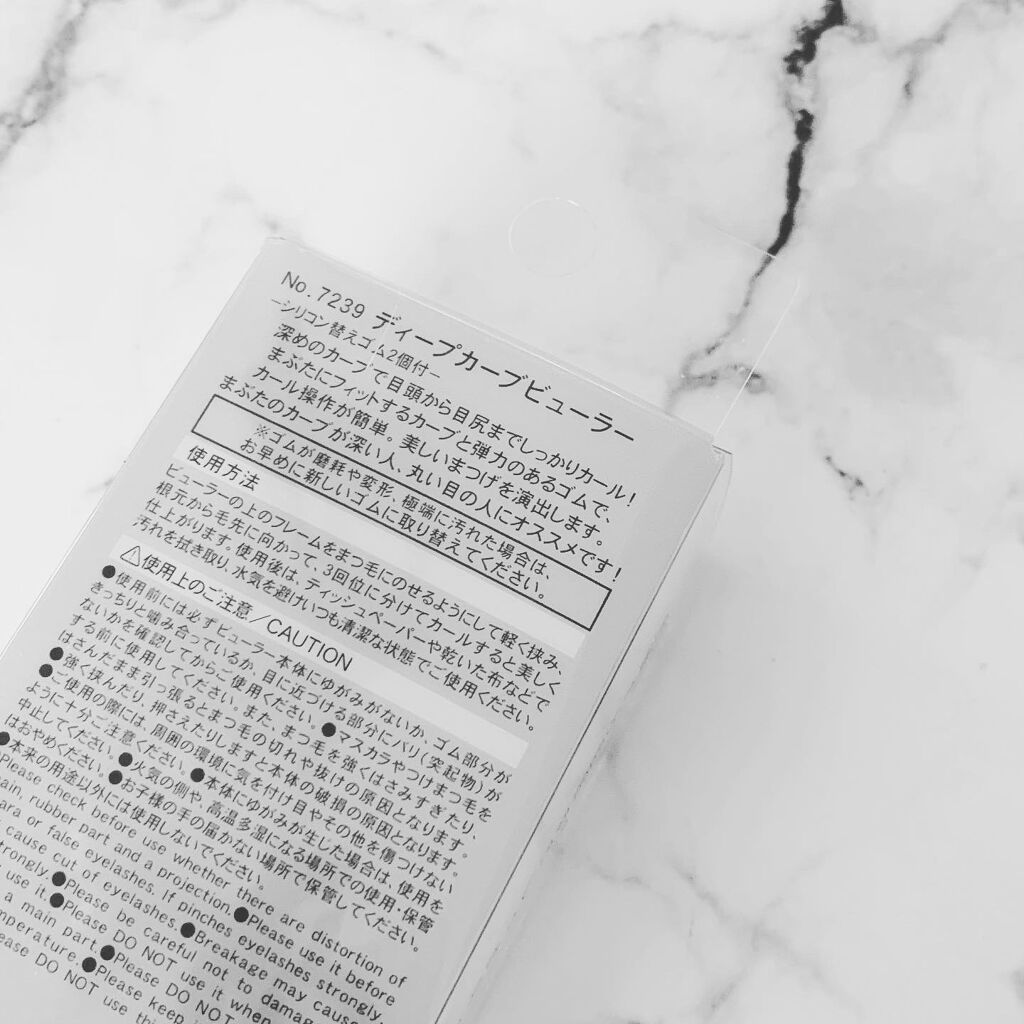 No. 7239 ディープカーブビューラー
−シリコン替えゴム2個付−
深めのカーブで目頭から目尻までしっかりカール!
まぶたにフィットするカーブと弾力のあるゴムで、
カール操作が簡単。美しいまつげを演出します。
まぶたのカーブが深い人、丸い目の人にオススメです!
※ゴムが磨耗や変形、極端に汚れた場合は、
お早めに新しいゴムに取り替えてください。
使用方法
ビューラーの上のフレームをまつ毛にのせるようにして軽く挟み、
根元から毛先に向かって、3回位に分けてカールすると美しく
仕上がります。使用後は、ティッシュペーパーや乾いた布などで
汚れを拭き取り、水気を避けいつも清潔な状態でご使用ください。
⚠使用上のご注意/CAUTION
●使用前には必ずビューラー本体にゆがみがないか、ゴム部分が
きっちりと噛み合っているか、目に近づける部分にバリ(突起物)が
ないかを確認してからご使用ください。●マスカラやつけまつ毛を
する前に使用してください。また、まつ毛を強くはさみすぎたり、
はさんだまま引っ張るとまつ毛の切れや抜けの原因となります。
●強く挟んだり、押さえたりしますと本体の破損の原因となります。
●ご使用の際には、周囲の環境に気を付け目やその他を傷つけない
ように十分ご注意ください。●本体にゆがみが生じた場合は、使用を
中止してください。●火気の側や、高温多湿になる場所での使用、保管
はおやめください。●お子様の手の届かない場所で保管してください。
●本来の用途以外には使用しないでください。
Please check before use whether there are distortion of
ain, rubber part and a projection.●Please use it before
ara or false eyelashes. If pinches eyelashes strongly,
cause cut of eyelashes.●Breakage may cause
trongly.●Please be careful not to damag
use it.●Please DO NOT use it when
a main part.●Please DO NOT
mperature.●Please keep i
ease DO NOT use thi